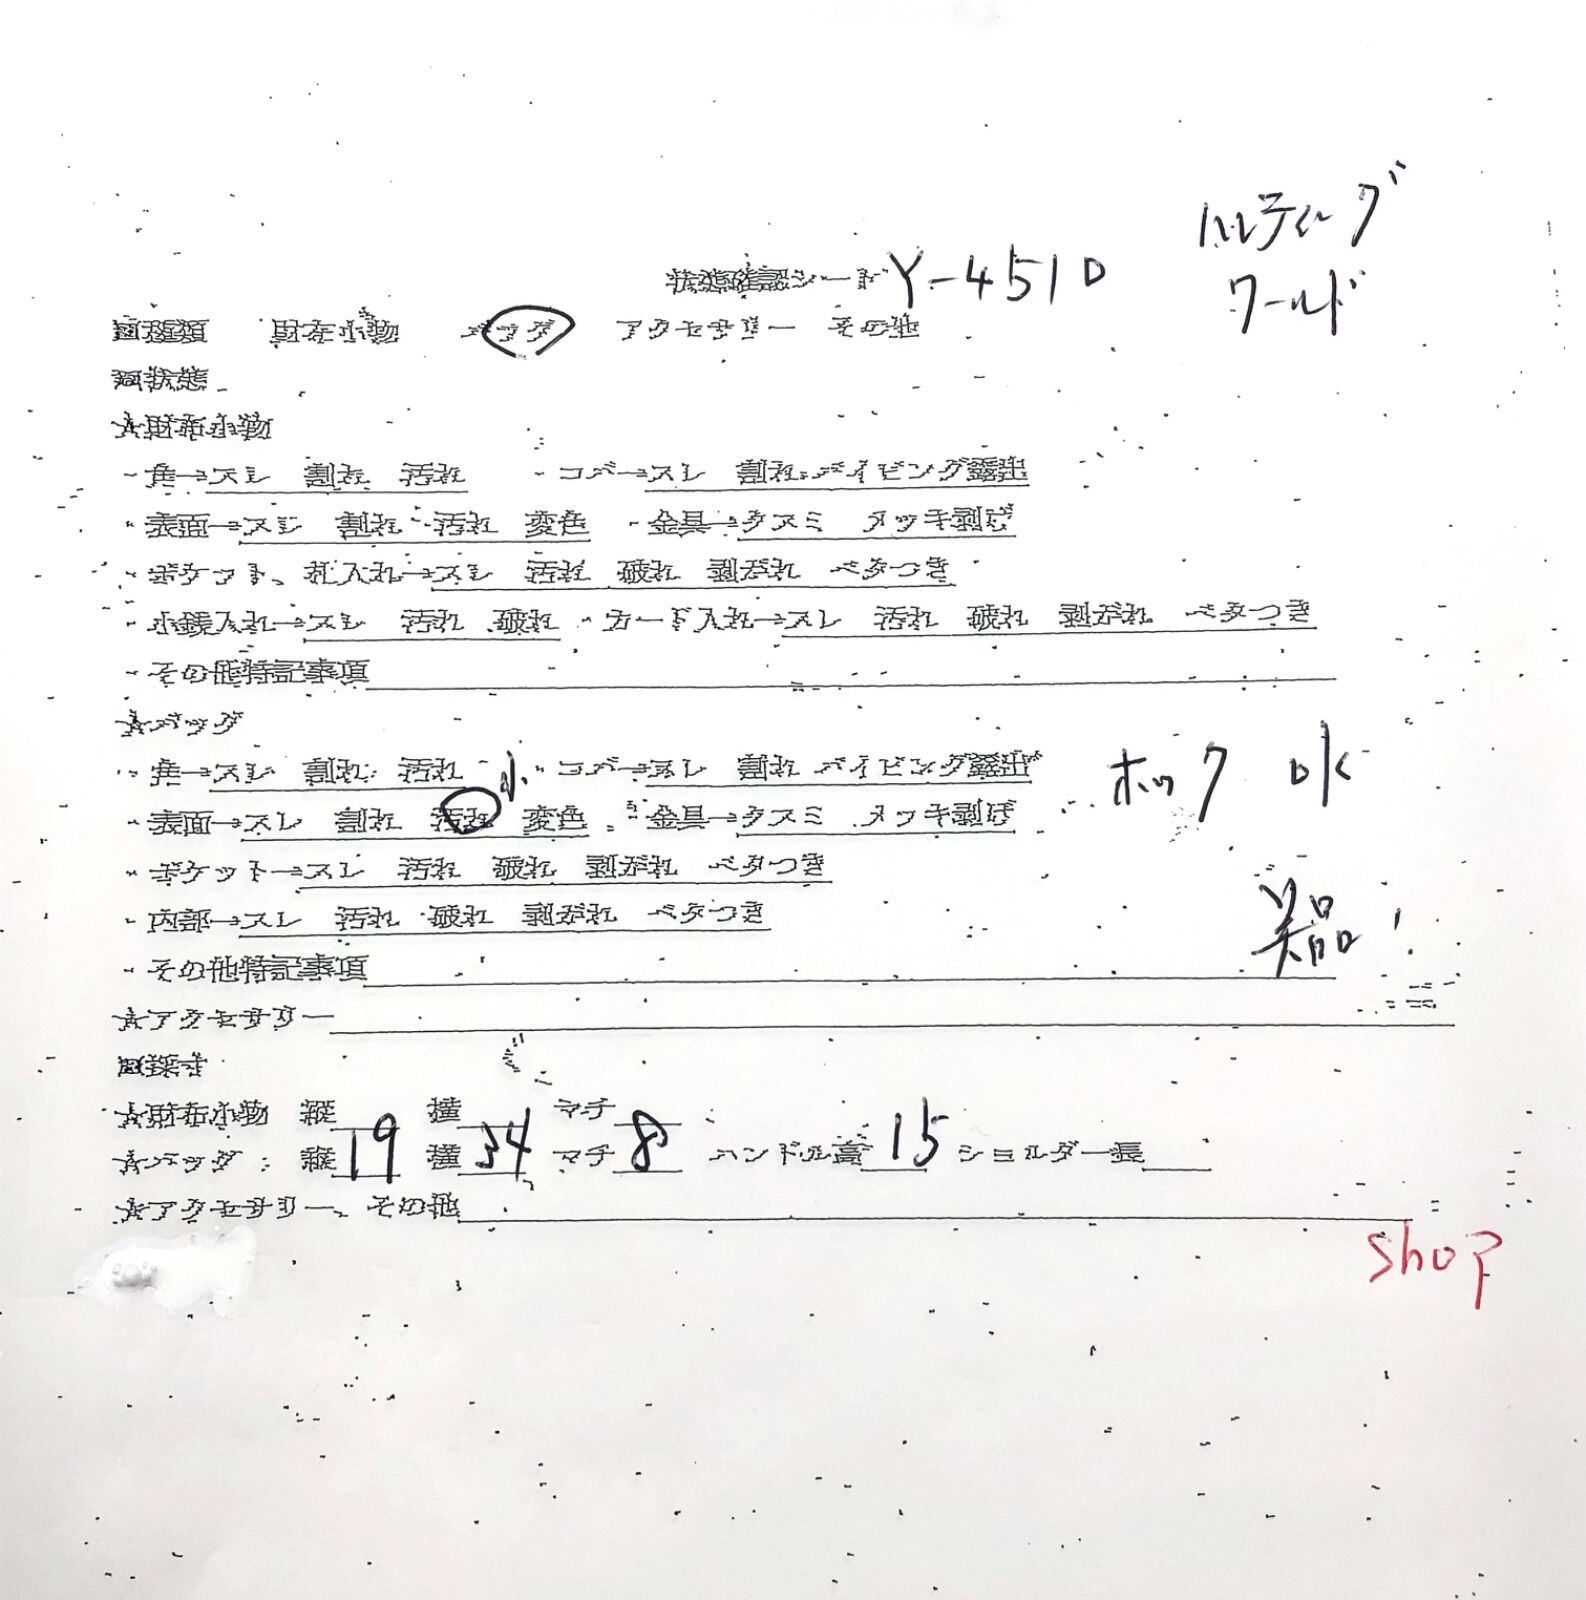 ハルティング
ワールド
状態確認シート Y-4510
回種類 財布小物 バッグ アクセサリー その他
回状態
☆財布小物
・角→スレ 割れ 汚れ ・コバ→スレ 割れ パイピング露出
・表面→スレ 割れ 汚れ 変色 ・金具→クスミ メッキ剥げ
・ポケット、札入れ→スレ 汚れ 破れ 剥がれ ベタつき
・小銭入れ→スレ 汚れ 破れ ・カード入れ→スレ 汚れ 破れ 剥がれ ベタつき
・その他特記事項
☆バッグ
・角→スレ 割れ 汚れ ・コバ→スレ 割れ パイピング露出 ホック OK
小
・表面→スレ 割れ 汚れ 変色 ・金具→クスミ メッキ剥げ
・ポケット→スレ 汚れ 破れ 剥がれ ベタつき
・内部→スレ 汚れ 破れ 剥がれ ベタつき
美品!
・その他特記事項
☆アクセサリー
回採寸
☆財布小物 縦 横 マチ
☆バッグ:縦19 横34 マチ8 ハンドル高15 ショルダー長
☆アクセサリー、その他
shop